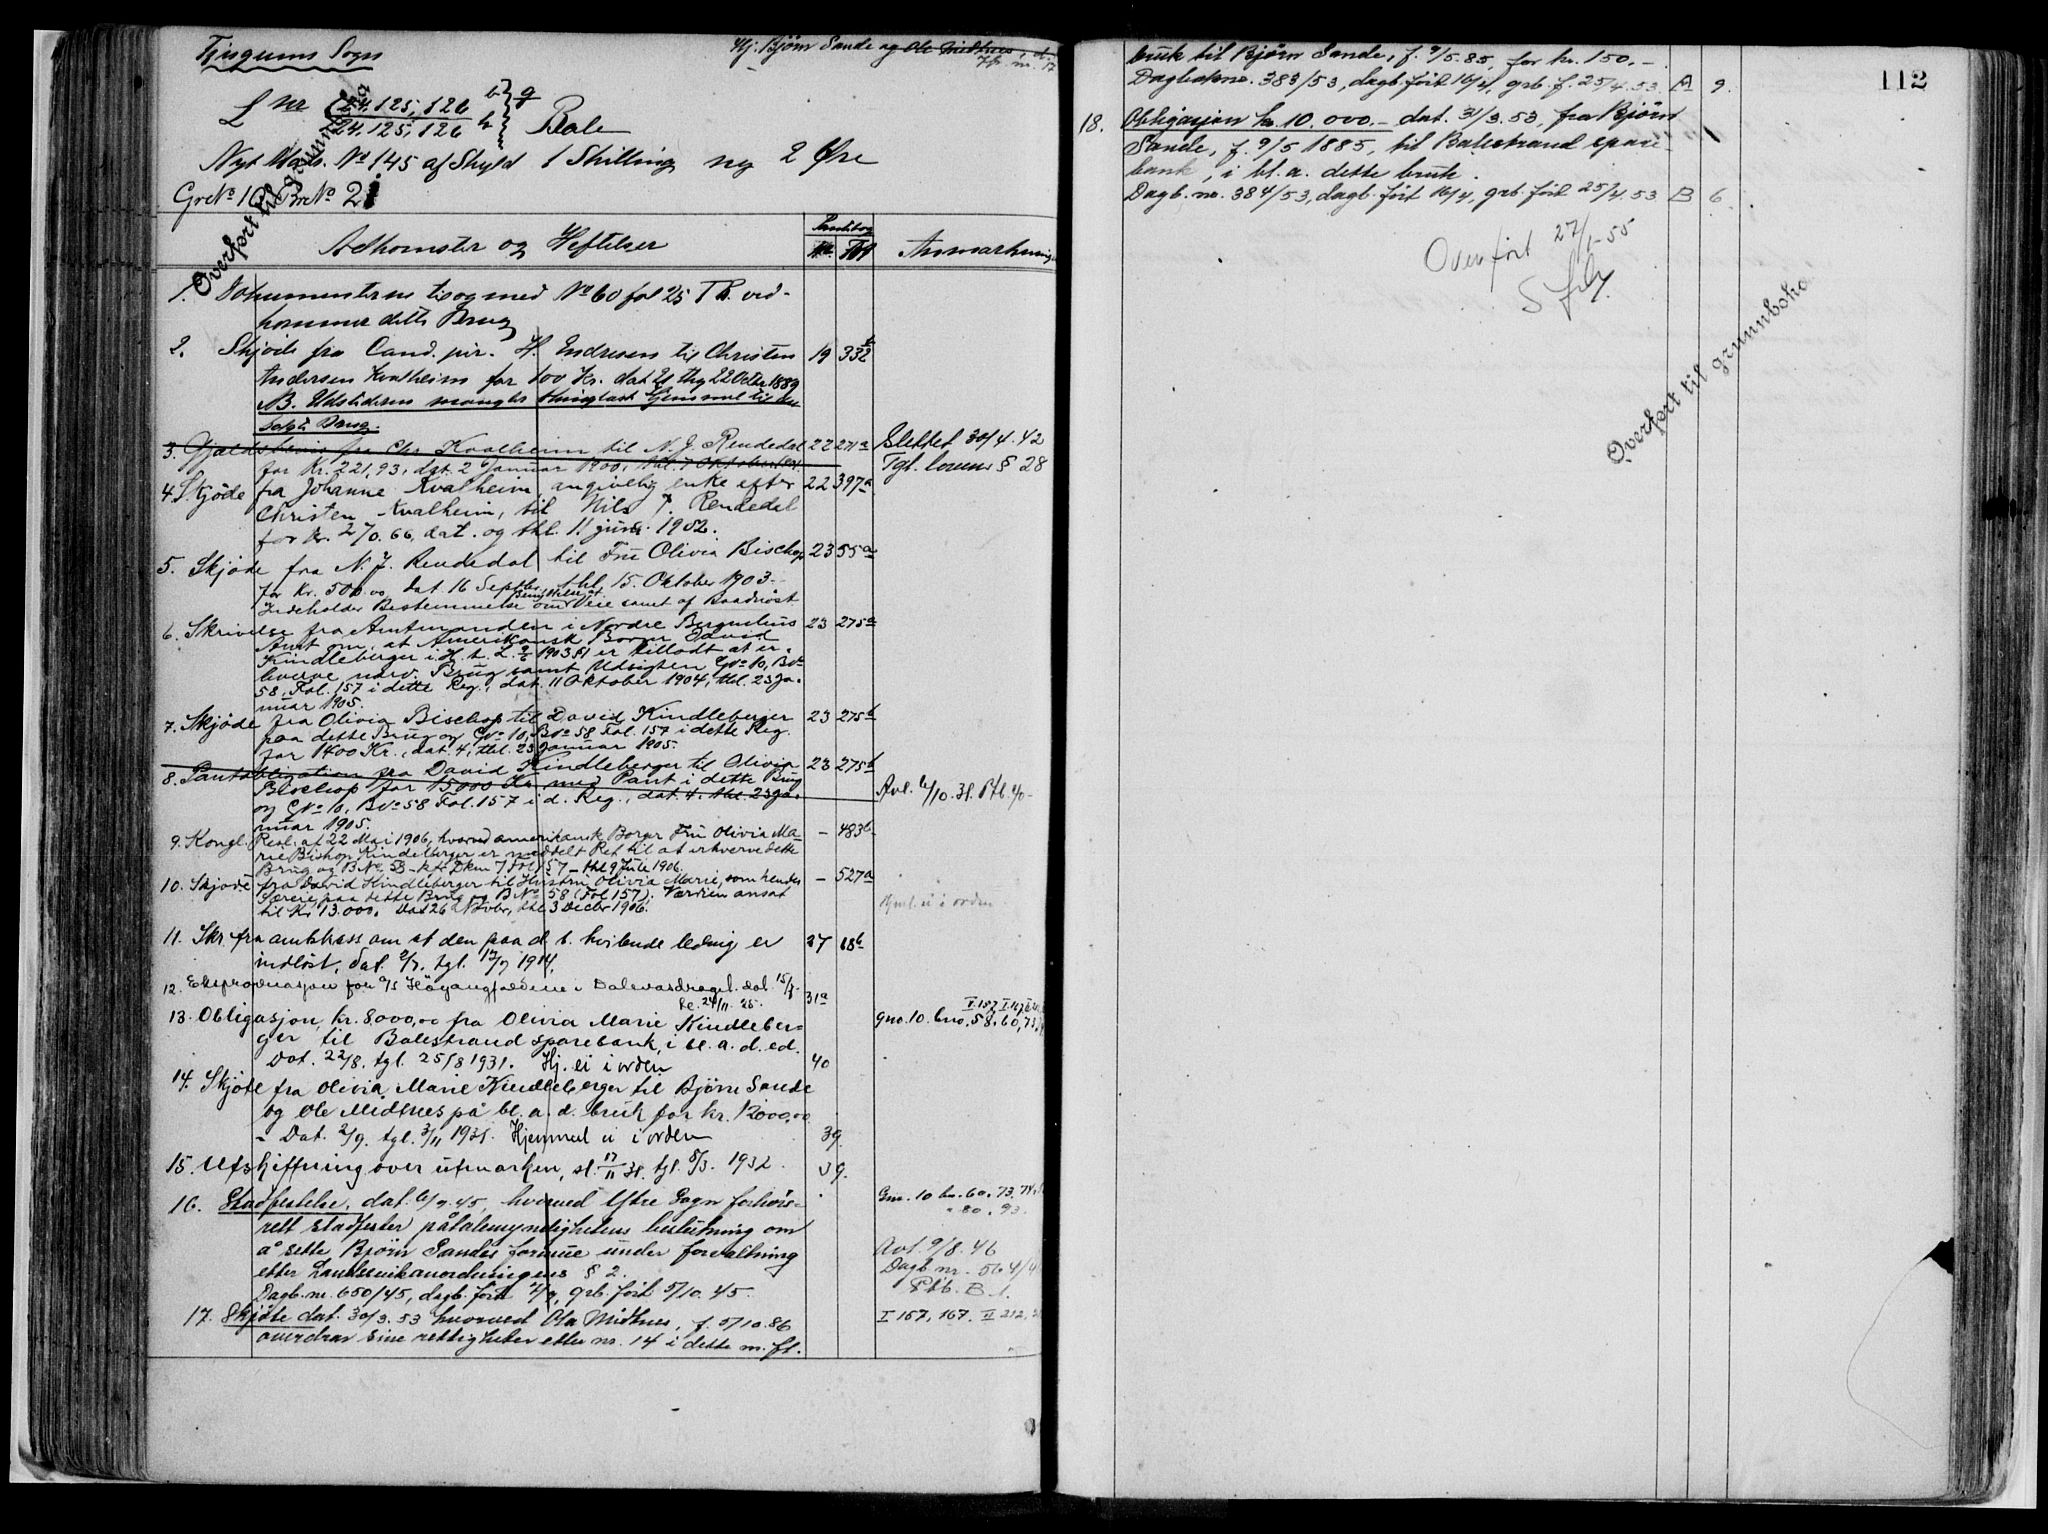 Tjugums Sogn
Hj. Bjørn Sande og Ole Midtnes
L nr 124.125, 126 b g
124.125, 126 h Bale
Nyt Matr. No 145 af Skyld 1 Skilling ny 2 Øre
Gr No 10 Br No 21
Overført til grunnbok
Adkomster og Heftelser
Pantebog
Nr. Fol
Anmærkning
1. Dokumenterne til og med No 60 fol 25 Pk. ved-
kommer dette Brug
2. Skjøde fra Cand. jur. H. Endresen til Christen 19 332 b
Andersen Kvalheim for 100 Kr. dat 21 thg 22 Octbr 1889
NB. Udstederen mangler thinglæst Hjemmel til det
solgte Brug.
3. Gjældsbevis fra Chr. Kvalheim til N. J. Rendedal 22 271 a
for Kr. 221,93, dat. 2 Januar 1900, thl. 7 Oktober
Slettet 30/4. 42
Tgl. lovens § 28
4. Skjøde fra Johanne Kvalheim, angivelig enke efter 22 397 a
Christen Kvalheim, til Nils J. Rendedal
for Kr. 270.66, dat. og thl. 11 juni 1902.
5. Skjøde fra N. J. Rendedal til Frü Olivia Bischop 23 55 a
for Kr. 500.00 dat 16 Septbr, thl. 15. Oktober 1903.-
Indeholder Bestemmelse om Veie samt af Baadnøst
6. Skrivelse fra Amtmanden i Nordre Bergenhus 23 275 a
Amt om, at Amerikansk Borger David
Kindleberger i H. t. L. 9/6 1903 §1 er tilladt at er-
hverve nærv. Brug samt Udsigten Gno 10, Bno
58, Fol. 157 i dette Reg., dat. 11 Oktober 1904, thl. 23 Ja-
nuar 1905.
7. Skjøde fra Olivia Bischop til David Kindleberger 23 275 b
paa dette Brug og Gno 10, Bno 58 Fol. 157 i dette Reg.
for 1400 Kr., dat. 4, thl. 23 Januar 1905.
8. Pantobligation fra David Kindleberger til Olivia 23 275 b
Bischop for 15000 Kr. med Pant i dette Brug
og Gno 10, Bno 58 Fol. 157 i d. Reg., dat. 4. thl. 23 Ja-
nuar 1905.
Avl. 6/10. 31. Ptb. 40-
9. Kongl. Resl. af 22 Mai 1906, hvorved amerikansk Borger Frü Olivia Ma- — 483 b
rie Bishop Kindelberger er meddelt Ret til at erhverve dette
Brug og B No 58 Fol 157 - thl 9 Juli 1906.
10. Skjøde fra David Kindleberger til Hustru Olivia Marie, som hendes — 527 a
Særeie paa dette Brug og B No 58 (Fol 157). Værdien ansat
til Kr. 13.000. Dat 26 Novbr, thl 3 Decbr 1906.
Hjml. ei i orden
11. Skr. fra amtskass om at den paa d. b. hvilende ledning er 27 18 b
indløst, dat. 2/7. tgl. 17/7 1914.
12. Ekspropriasjon for A/S Høyangfaldene i Dalevasdraget. dat. 15/7- 31 a
Le. 24/11 25.
13. Obligasjon, kr. 8000,00 fra Olivia Marie Kindleber-
ger til Balestrand sparebank, i bl. a. d. ed.
Dat. 22/8. tgl. 25/8 1931. Hj. ei i orden 40
gno. 10. bno. 58, 60, 73,
14. Skjøte fra Olivia Marie Kindleberger til Bjørn Sande
og Ole Midtnes på bl. a. d. bruk for kr. 12000,00
- Dat. 2/9. tgl. 3/11 1931. Hjemmel ei i orden 39
15. Utskiftning over utmarken, sl. 17/11 31. tgl. 8/3. 1932. 39.
16. Stadfestelse, dat. 6/7.45, hvorved Ytre Sogn forhørs-
rett stadfester påtalemyndighetens beslutning om
å sette Bjørn Sandes formue under forvaltning
etter Landssvikanordningens § 2.
Dagb. nr. 650/45, dagb. ført 7/7, grb. ført 5/10. 45.
Gnr. 10 bn. 60. 73. 74.
" 80. 93.
Avl. 9/8. 46
Dagb nr. 564/4
Ptb. B 1.
17. Skjøte dat. 30/3. 53 hvorved Ola Midtnes, f. 5/10. 86
overdrar sine rettigheter etter nr. 14 i dette m. fl.
I 157, 167. II 212,
112
bruk til Bjørn Sande, f. 9/5. 85, for kr. 150.-
Dagboknr. 383/53, dagb. ført 16/4, grb. f. 25/4. 53. A 9.
18. Obligasjon kr. 10.000.- dat. 31/3. 53, fra Bjørn
Sande, f. 9/5 1885, til Balestrand spare-
bank, i bl. a. dette bruk.
Dagb. nr. 384/53, dagb. ført 16/4, grb. ført 25/4. 53. B 6.
Overført 27/1-55
Overført til grunnboka